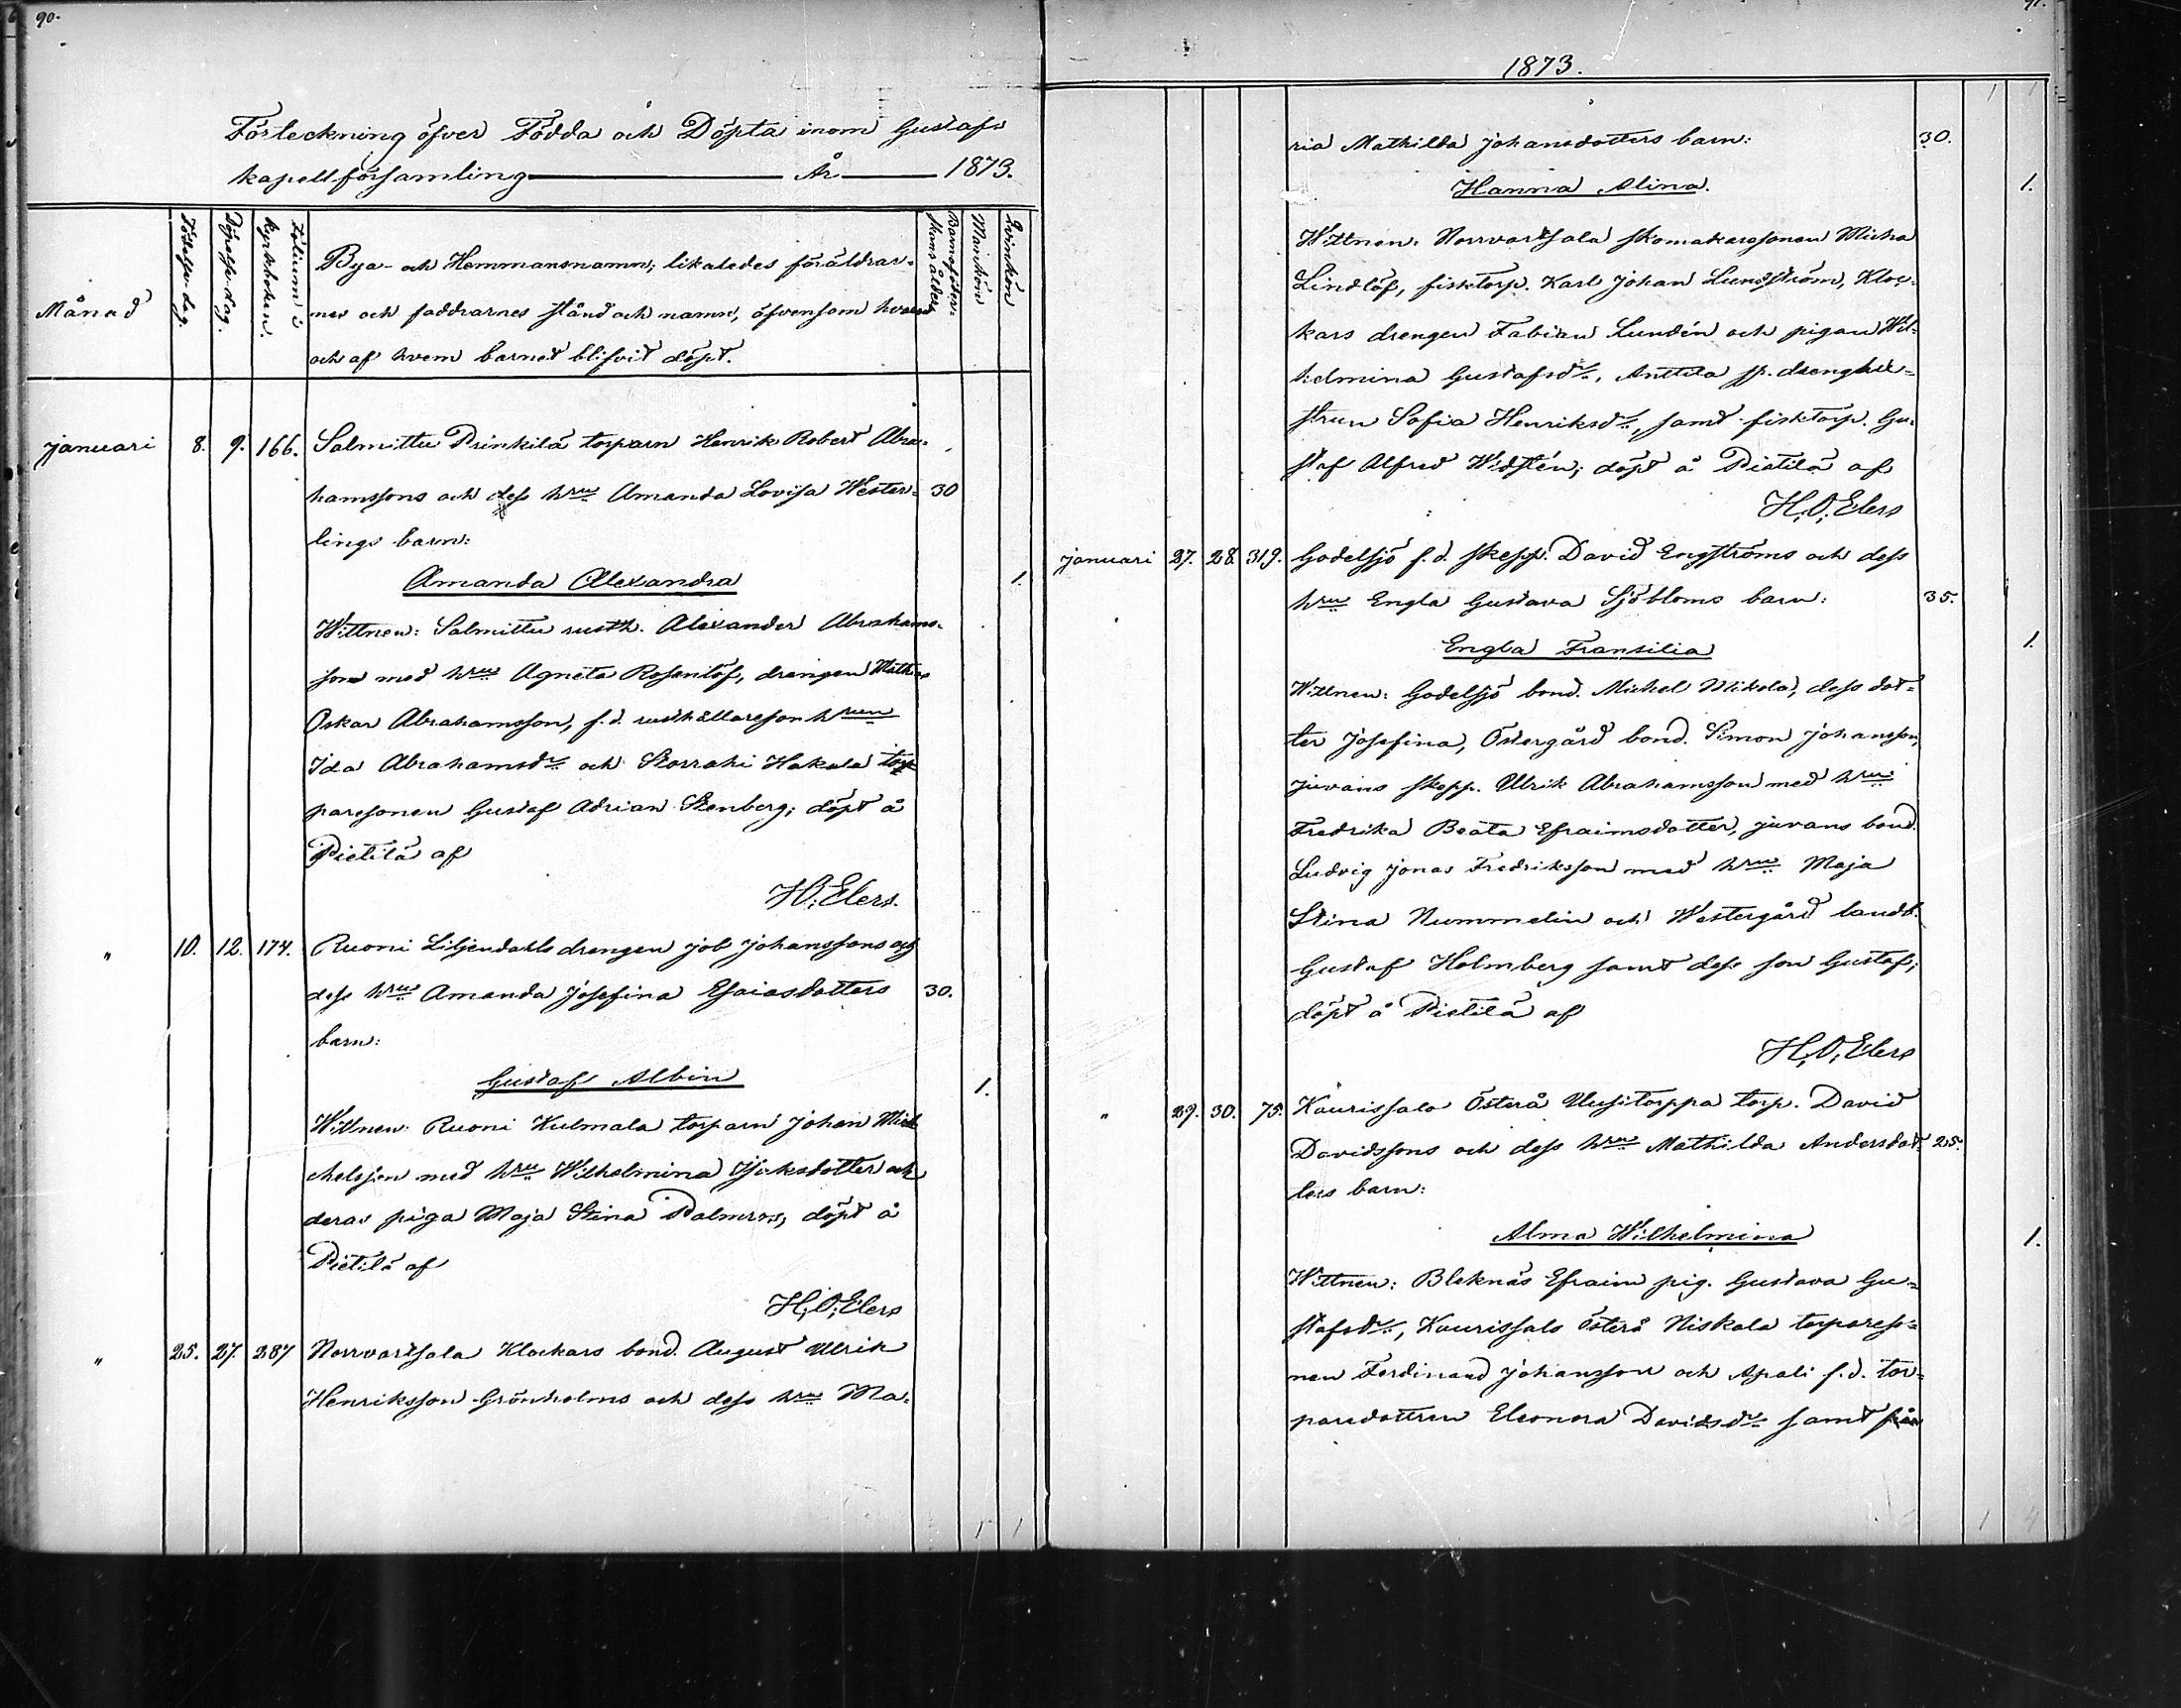 90.
Förteckning öfver Födda och Döpta inom Gustafs
kapellförsamling År 1873.
Månad
Födelse dag.
Döpelse dag.
Folium i kyrkboken.
Bya- och Hemmansnamn; likaledes föräldrar-
nes och faddrarnes stånd och namn, öfvensom hvarest
och af hvem barnet blifvit döpt.
Barnaföder-
skans ålder
Mankön
Qvinkön
Januari 8. 9. 166. Salmittu Prinkilä torparn Henrik Robert Abra-
hamssons och dess hru Amanda Lovisa Wester- 30
lings barn:
Amanda Alexandra 1.
Wittnen: Salmittu rusth. Alexander Abrahams-
son med hru Agneta Rosenlöf, drengen Mathias
Oskar Abrahamsson, f.d. rusthållareson hrun
Ida Abrahamsdr och Storrahi Hakala tor
paresonen Gustaf Adrian Stenberg; döpt å
Pietilä af
H,O; Elers.
" 10. 12. 174. Ruoni Liljendahls drengen Job Johanssons och
dess hru Amanda Josefina Esaiasdotters 30.
barn:
Gustaf Albin 1.
Wittnen: Ruoni Kulmala torparn Johan Mic
chelsson med hru Wilhelmina Isaksdotter och
deras piga Maja Stina Palmros, döpt å
Pietilä af
H,O; Elers
" 25. 27. 287 Norrvartsala Klockars bond. August Ulrik
Henriksson Grönholms och dess hru Ma-
1 1
91.
1873.
1 1
ria Mathilda Johansdotters barn: 30.
Hanna Alina. 1.
Wittnen: Norrvartsala skomakaresonen Micha
Lindlöf, fisktorp. Karl Johan Lundström, Kloc-
kars drengen Fabian Lundén och pigan Wil-
helmina Gustafsdr, Anttila sp. drenghu-
strun Sofia Henriksdr, samt fisktorp. Gu-
staf Alfred Widstén; döpt å Pietilä af
H,O; Elers
Januari 27. 28. 319. Godelsjö f.d. skepp. David Engströms och dess
hru Engla Gustava Sjöbloms barn: 35.
Engla Fransilia 1.
Wittnen: Godelsjö bond. Michel Mikola, dess dot-
ter Josefina, Östergård bond. Simon Johansson,
Juvans skepp. Ulrik Abrahamsson med hru
Fredrika Beata Efraimsdotter, Juvans bond.
Ludvig Jonas Fredriksson med hru Maja
Stina Nummelin och Westergård landb.
Gustaf Holmberg samt dess son Gustaf;
döpt å Pietilä af
H,O; Elers
" 29. 30. 75. Kaurissalo Österå Uusitorppa torp. David
Davidssons och dess hru Mathilda Andersdot- 25.
ters barn:
Alma Wilhelmina 1.
Wittnen: Bleknäs Efraim pig. Gustava Gu-
stafsdr, Kaurissalo Österå Niskala toparesо-
nen Ferdinand Johansson och Apali f.d. tor-
paredottren Eleonora Davidsdr samt från
1 4